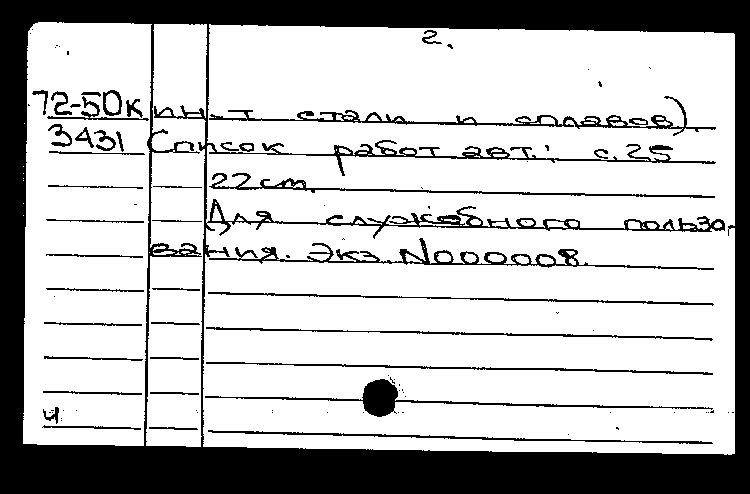 2.
72-50к ин-т стали и сплавов).
3431 Список работ авт.: с. 25
22 cm.
Для служебного пользо-
вания. Экз. N000008.
ч